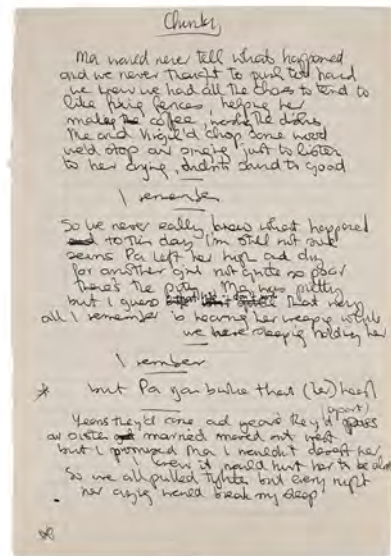 Chunky
Ma would never tell whats happened
and we never thought to push too hard
we knew we had all the chores to tend to
like fixing fences, helping her
making the coffee, washing the dishes
Me and Virgil'd chop some wood
we'd stop our singing just to listen
to her crying, didn't sound to good
I remember
So we never really knew what happened
to this day I'm still not sure
seems Pa left her high and dry
for another girl not quite so poor
there's the pity Ma was pretty
but I guess that very
all I remember is hearing her weeping while
we were sleeping holding her
I rember
* but Pa you broke that (her) heart
(apart)
Years they'd come and years they'd pass
our sister married moved out west
but I promised Ma I wouldn't desert her
I knew it would hurt her to be alone
So we all pulled tighter but every night
her crying would break my sleep